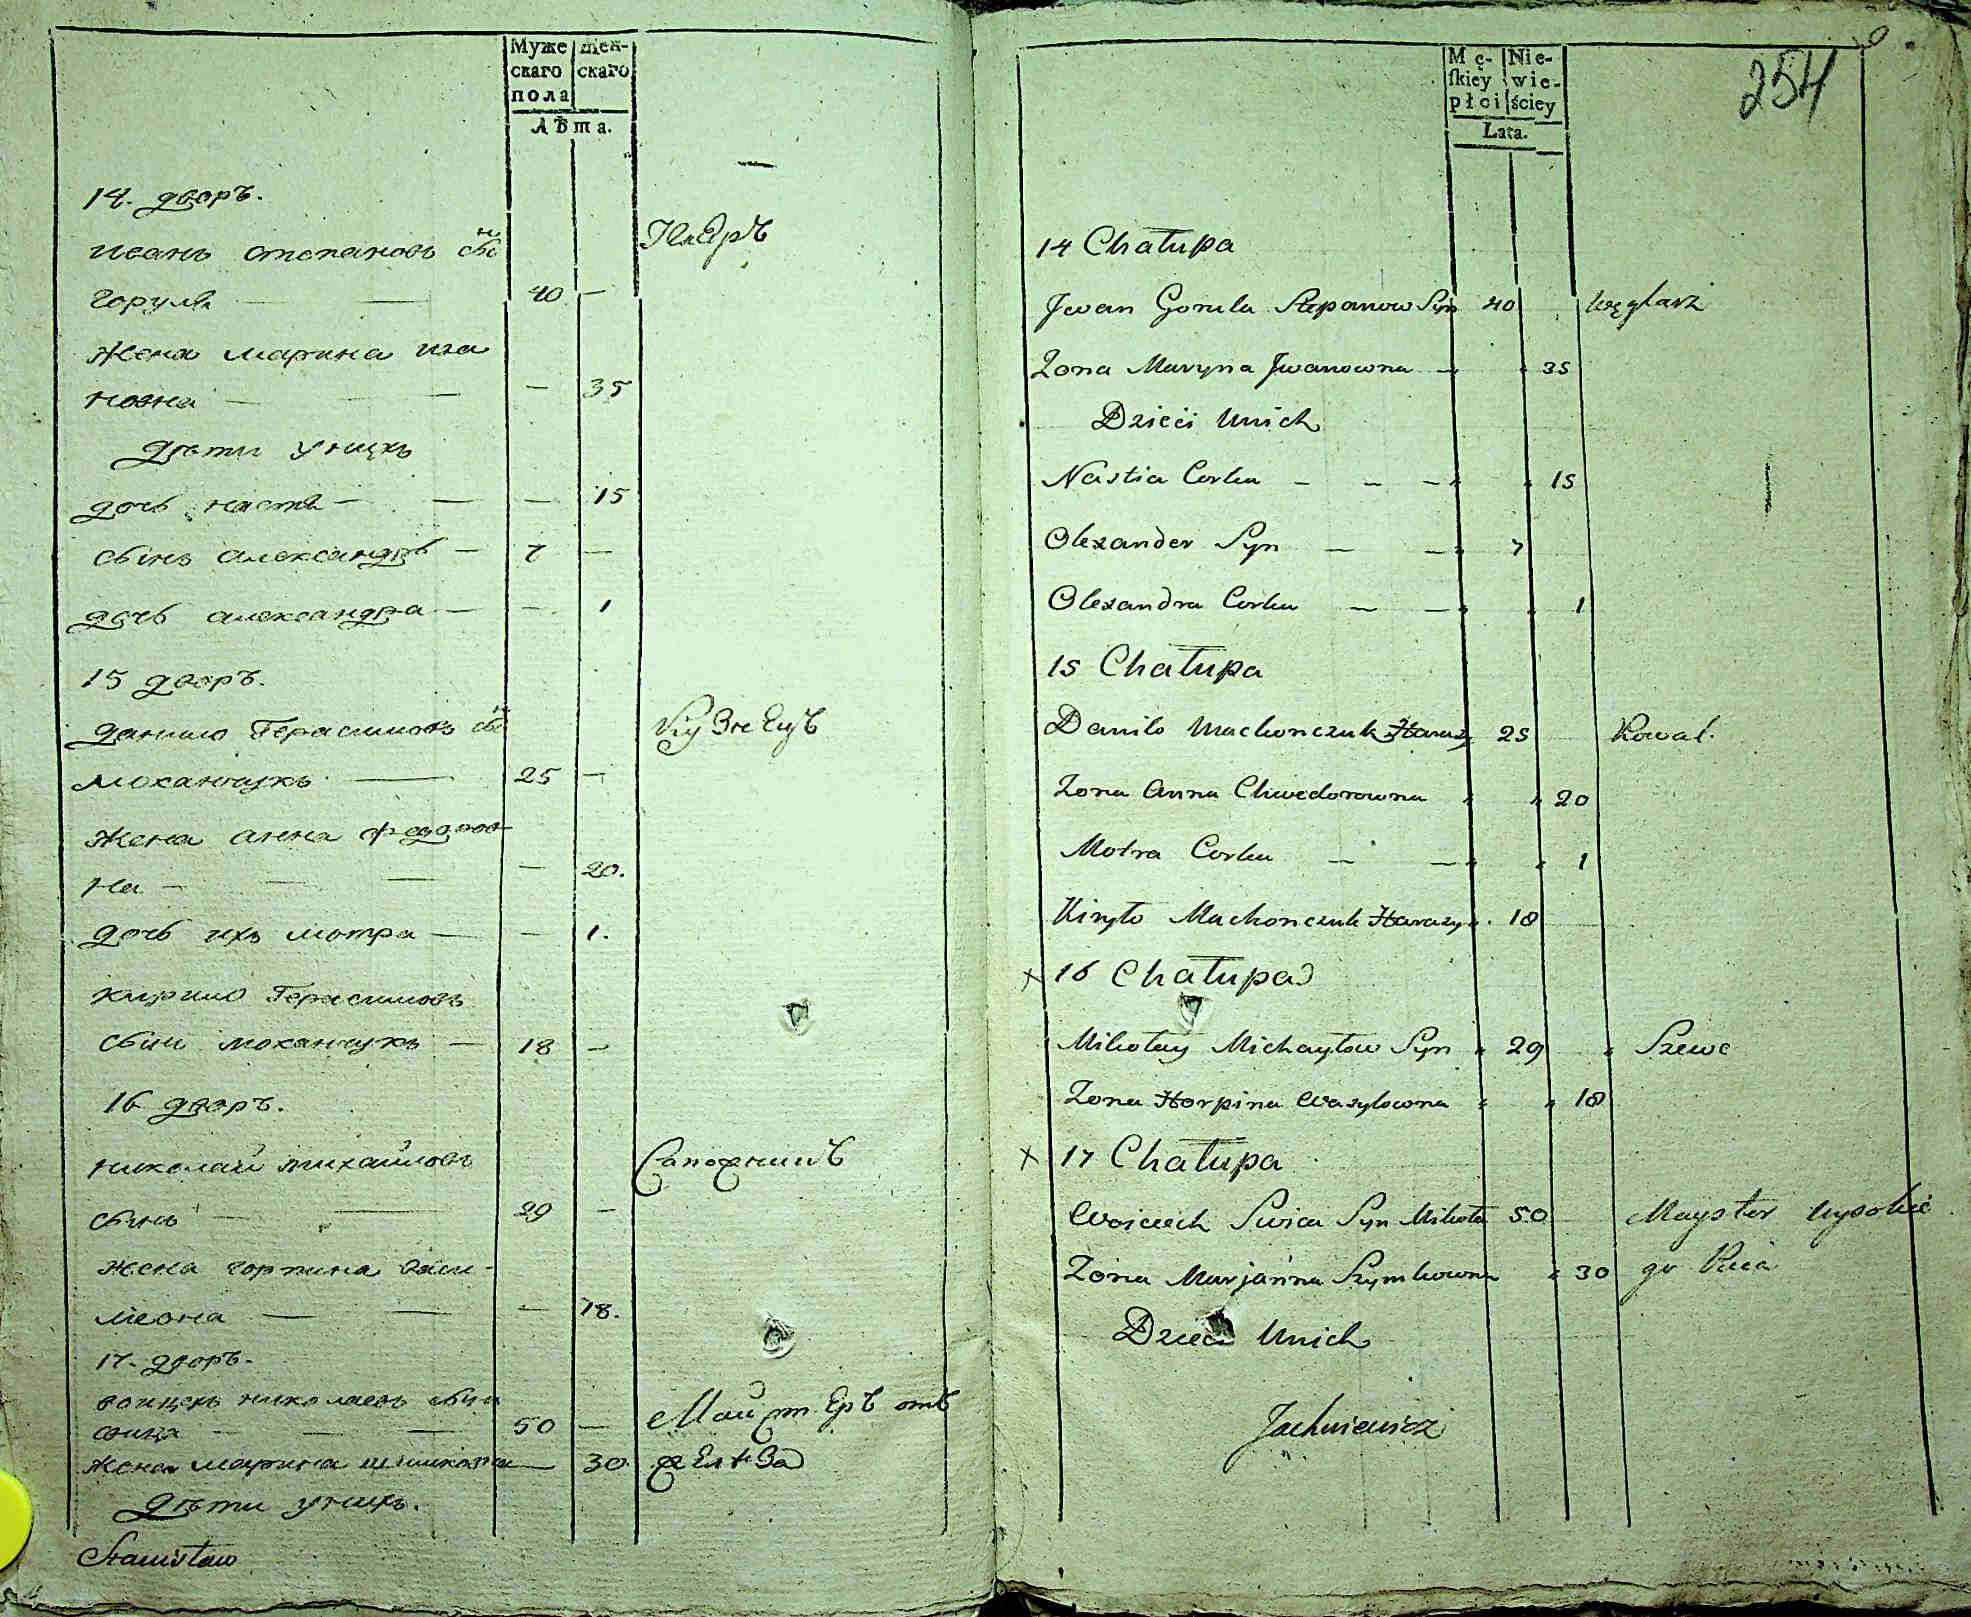 Муже
скаго
пола
Жен-
скаго
Лѣта.
14. дворъ.
иванъ степановъ сынъ
горуля — — 40 —
жена марина ива
новна — — — 35
дѣти унихъ
дочь настя — — — 15
сынъ александръ — 7 —
дочь александра — — 1
15 дворъ.
данило Герасимовъ сы
моханчукъ — 25 — Кузнецъ
жена анна федоров
на — — — 20.
дочь ихъ мотра — — 1.
кирило Герасимовъ
сынъ моханчукъ — 18 —
16 дворъ.
николай михайловъ Сапожникъ
сынъ — — 29 —
жена горпина васи-
левна — — — 18.
17. дворъ.
воицехъ николаевъ сынъ
свица — — 50 — Майстеръ отъ
жена марина шимковна — 30
дѣти унихъ.
Stanisław
254
Mę-
ſkiey
płci
Nie-
wie-
ściey
Lata.
14 Chałupa
Jwan Gorula Stepanow Syn 40 Węglarz
Zona Maryna Jwanowna — " 35
Dzieci Unich
Nastia Corka — — — " " 15
Olexander Syn — — " 7
Olexandra Corka — — " " 1
15 Chałupa
Daniło Machonczuk Harasy 25 Kowal.
Zona Anna Chwedorowna " " 20
Motra Corka — — " " 1
Kiryło Machonczuk Harasy " 18
x 16 Chałupa
Mikołay Michayłow Syn " 29 " Szewc
Zona Horpina Wasylowna " " 18
x 17 Chałupa
Woiciech Swica Syn Mikoła 50 Mayster wysokie
Zona Marjanna Szymkowna " 30 go Pieca
Dzieci Unich
Jachniewicz